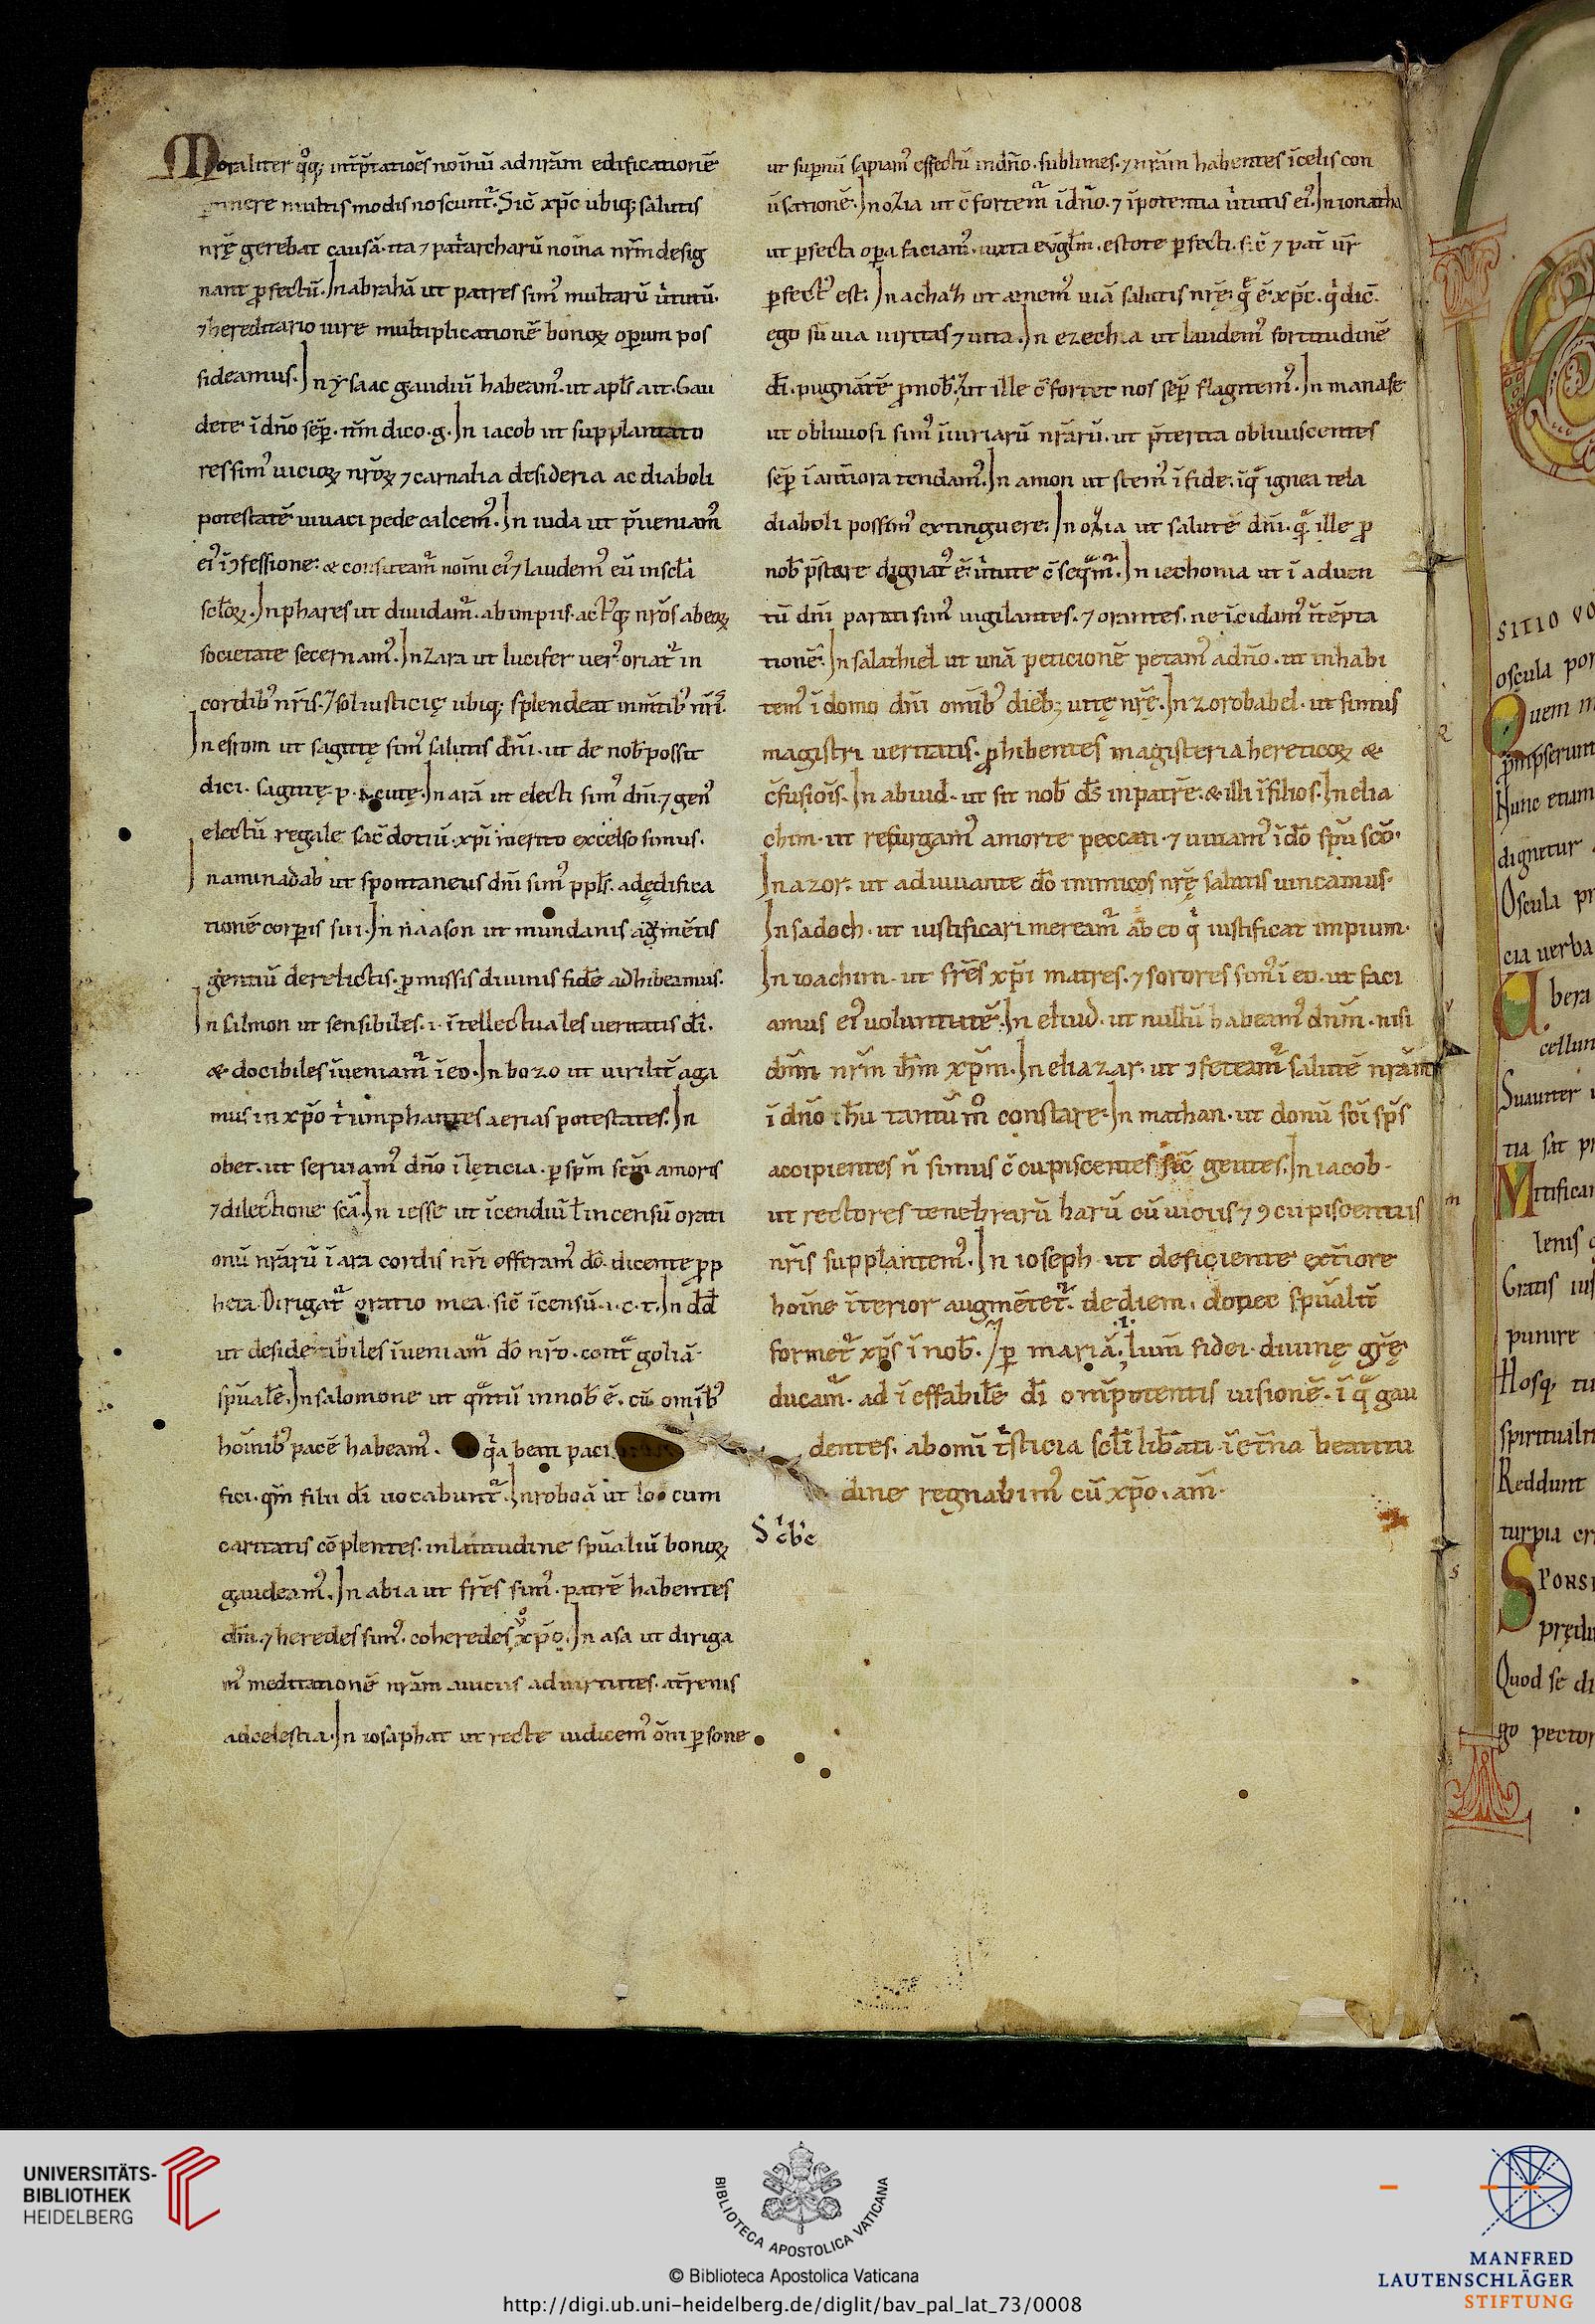 Moraliter q̊q; int̄p̄tatioēs noīnū ad nr̄am edificationē
nere multis modis noscunt᷑. Sic̄ xp̄c ubiq; salutis
nr̄ę gerebat causā. ita ⁊ pat͛archarū noīna nr̄m desig
nant ꝓfectū. In abrahā ut patres sim᷒ multarū u͛tutū.
⁊ hereditario iure multiplicationē bonoꝝ oꝑum pos
sideamus. In ẏsaac gaudiū habeam᷒. ut apl̄s ait. Gau
dete ī dn̄o sēp̄. it̄m dico. g. In iacob ut supplantato
res sim᷒ uicioꝝ nr̄oꝝ ⁊ carnalia desideria ac diaboli
potestatē uiuaci pede calcem᷒. In iuda ut p̄ueniam᷒
ei᷒ ī ꝯfessione: & confiteam᷑ nomī ei᷒ ⁊ laudem᷒ eū in scl̄a
scl̄oꝝ. In phares ut diuidam᷑. ab impiis. act᷒q; nr̄os ab eoꝝ
societate secernam᷒. In zara ut lucifer uer᷒ oriat᷑ in
cordib᷒ nr̄is. ⁊ sol iusticię ubiq; splendeat in m̄tib᷒ nr̄i᷒.
In esrom ut sagittę sim᷒ salutis dn̄i. ut de nob̄ possit
dici. sagittę. p. acutę. In arā ut electi sim᷒ dn̄i. ⁊ gen᷒
electū regale sac̄dotiū. xp̄i merito excelso simus.
In aminadab ut spontaneus dn̄i sim᷒ ppl̄s. ad ędifica
tionē corꝑis sui. In naason ut mundanis augmētis
gentiū derelictis. ꝓmissis diuinis fidē adhibeamus.
In salmon ut sensibiles. i. ītellectuales ueritatis dī.
& docibiles īueniam᷑ ī eo. In bozo ut uirilit̄ aga
mus in xp̄o t͛umphantes aerias potestates. In
obet. ut seruiam᷒ dn̄o ī lęticia. ꝑ sp̄m scm̄ amoris
⁊ dilectione scā. In iesse ut īcendiū ł incensū orati
onū nr̄arū ī ara cordis nr̄i offeram᷒ dō. dicente ꝓp
heta. Dirigat᷑ oratio mea. sic̄ īcensū. i. c. t. In dd̄
ut desiderabiles īueniam᷑ dō nr̄o. contͣ goliā.
sp̄ualē. In salomone ut qͣntū in nob̄ ē. cū omīb᷒
hoīnib᷒ pacē habeam᷒. q͛a beati paci
fici. qm̄ filii dī uocabunt᷑. In roboā ut locum
caritatis cōplentes. in latitudine sp̄ualiū bonoꝝ
gaudeam᷒. In abia ut fr̄es sim᷒. patrē habentes
dm̄. ⁊ heredes sim᷒. coheredes xp̄o. In asa ut diriga
m᷒ meditationē nr̄am a uiciis ad uirtutes. a t̄renis
ad celestia. In iosaphat ut recte iudicem᷒ om̄i ꝑsone
ut supnū sapiam᷒ effectū in dn̄o. sublimes. ⁊ nr̄am habentes ī celis con
ūsationē. In ozia ut c̄fortem᷑ ī dn̄o. ⁊ ī potentia u͛tutis ei᷒. In ionatha
ut ꝑfecta oꝑa faciam᷒. iuxta euvgl̄m. estote ꝑfecti. sic̄ ⁊ pat̄ ur̄
ꝑfect᷒ est: In achaz ut amem᷒ uiā salutis nr̄ę: q̄ ē xp̄c. q͛ dic̄.
ego sū uia ueritas ⁊ uita. In ezechia ut laudem᷒ fortitudinē
dī. pugnātē ꝓ nob̄. ⁊ ut ille c̄fortet nos sēp̄ flagitem᷒. In manase
ut obliuiosi sim᷒ īiuriarū nr̄arū. ut p̄terita obliuiscentes
sēp̄ ī ant̄iora tendam᷒. In amon ut stem᷒ ī fide: ī qͣ ignea tela
diaboli possim᷒ extinguere: In ozia ut salutē dn̄i. qͣ ille ꝓ
nob̄ p̄stare dignat᷒ ē: u͛tute c̄seqͣm᷑. In iechonia ut ī aduen
tū dn̄i parati sim᷒ uigilantes. ⁊ orantes. ne īcidam᷒ ī tēpta
tionē. In salathiel ut unā peticionē petam᷒ a dn̄o. ut inhabi
tem᷒ ī domo dn̄i omīb᷒ dieb᷒; uitę nr̄ę. In zorobabel. ut simus
magistri ueritatis. ꝓhibentes magisteria hereticoꝝ &
c̄fusiōis. In abiud. ut sit nob̄ ds̄ in patrē. & illi ī filios. In elia
chim. ut resurgam᷒ a morte peccati. ⁊ uiuam᷒ ī dō sp̄u scō.
In azor. ut adiuuante dō inimicos nr̄ę salutis uincamus.
In sadoch. ut iustificari meream᷑ ab eo q͛ iustificat impium.
In ioachim. ut fr̄es xp̄i matres. ⁊ sorores sim᷒ ī eo. ut faci
amus ei᷒ uoluntatē. In eliud. ut nullū habeam᷒ dnm̄. nisi
dnm̄ nr̄m ih̄m xp̄m. In eliazar. ut ꝯfiteam᷑ salutē nr̄am
ī dn̄o ih̄u tantūm̊ constare. In mathan. ut donū scī sp̄s
accipientes n̄ simus c̄cupiscentes sic̄ gentes. In iacob.
ut rectores tenebrarū harū cū uiciis ⁊ ꝯcupiscentiis
nr̄is supplantem᷒. In ioseph ut deficiente ext̄iore
hoīne īterior augmētet᷑. de diem. donec sp̄ualit̄
formet᷑ xp̄s ī nob̄. ⁊ ꝑ mariā. .i. lum̄ fidei. diuinę gr̄ę
ducam᷑. ad īeffabilē dī omīpotentis uisionē. ī qͣ gau
dentes. ab omī t͛sticia scl̄i lib̄ati. ī et̄na beatitu
dine regnabim᷒ cū xp̄o. am̄.
UNIVERSITÄTS-
BIBLIOTHEK
HEIDELBERG
BIBLIOTECA APOSTOLICA VATICANA
© Biblioteca Apostolica Vaticana
http://digi.ub.uni-heidelberg.de/diglit/bav_pal_lat_73/0008
MANFRED
LAUTENSCHLÄGER
STIFTUNG